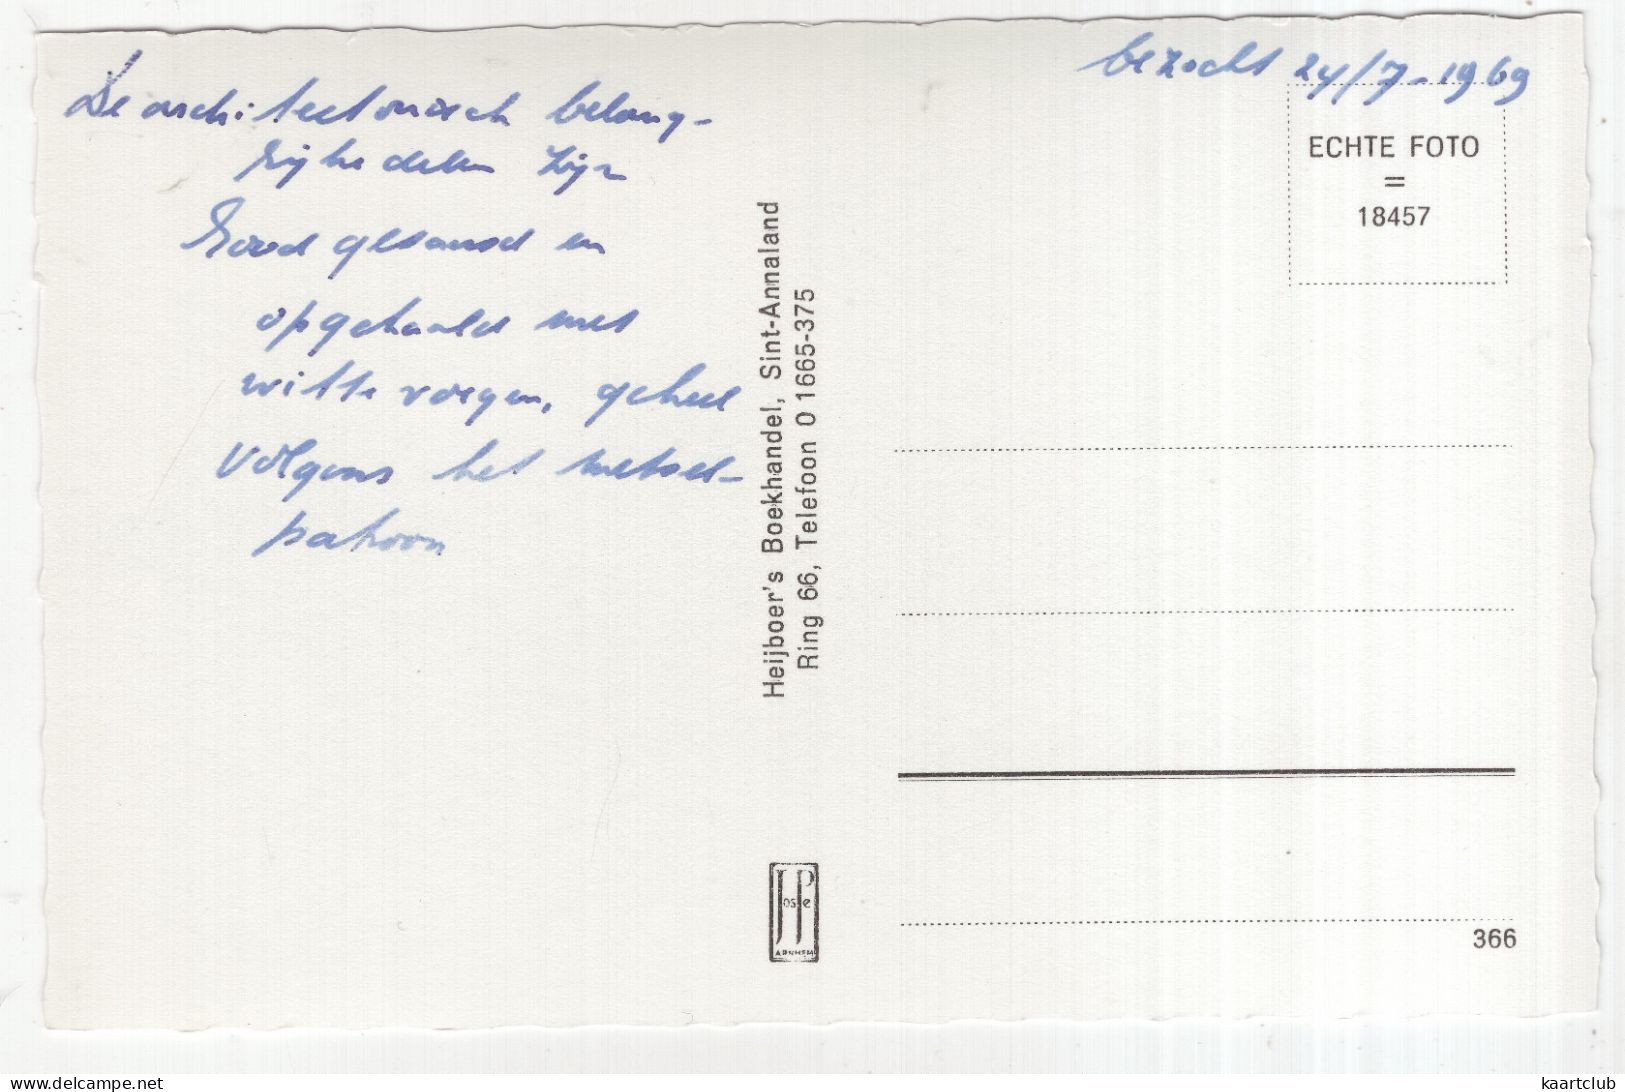 De architectonisch belang-
rijke delen zijn
rood gesausd en
opgehaald met
witte voegen, geheel
volgens het metsel-
patroon
Heijboer's Boekhandel, Sint-Annaland
Ring 66, Telefoon 01665-375
JosPe
ARNHEM
bezocht 24/7-1969
ECHTE FOTO
=
18457
366
www.delcampe.net
kaartclub